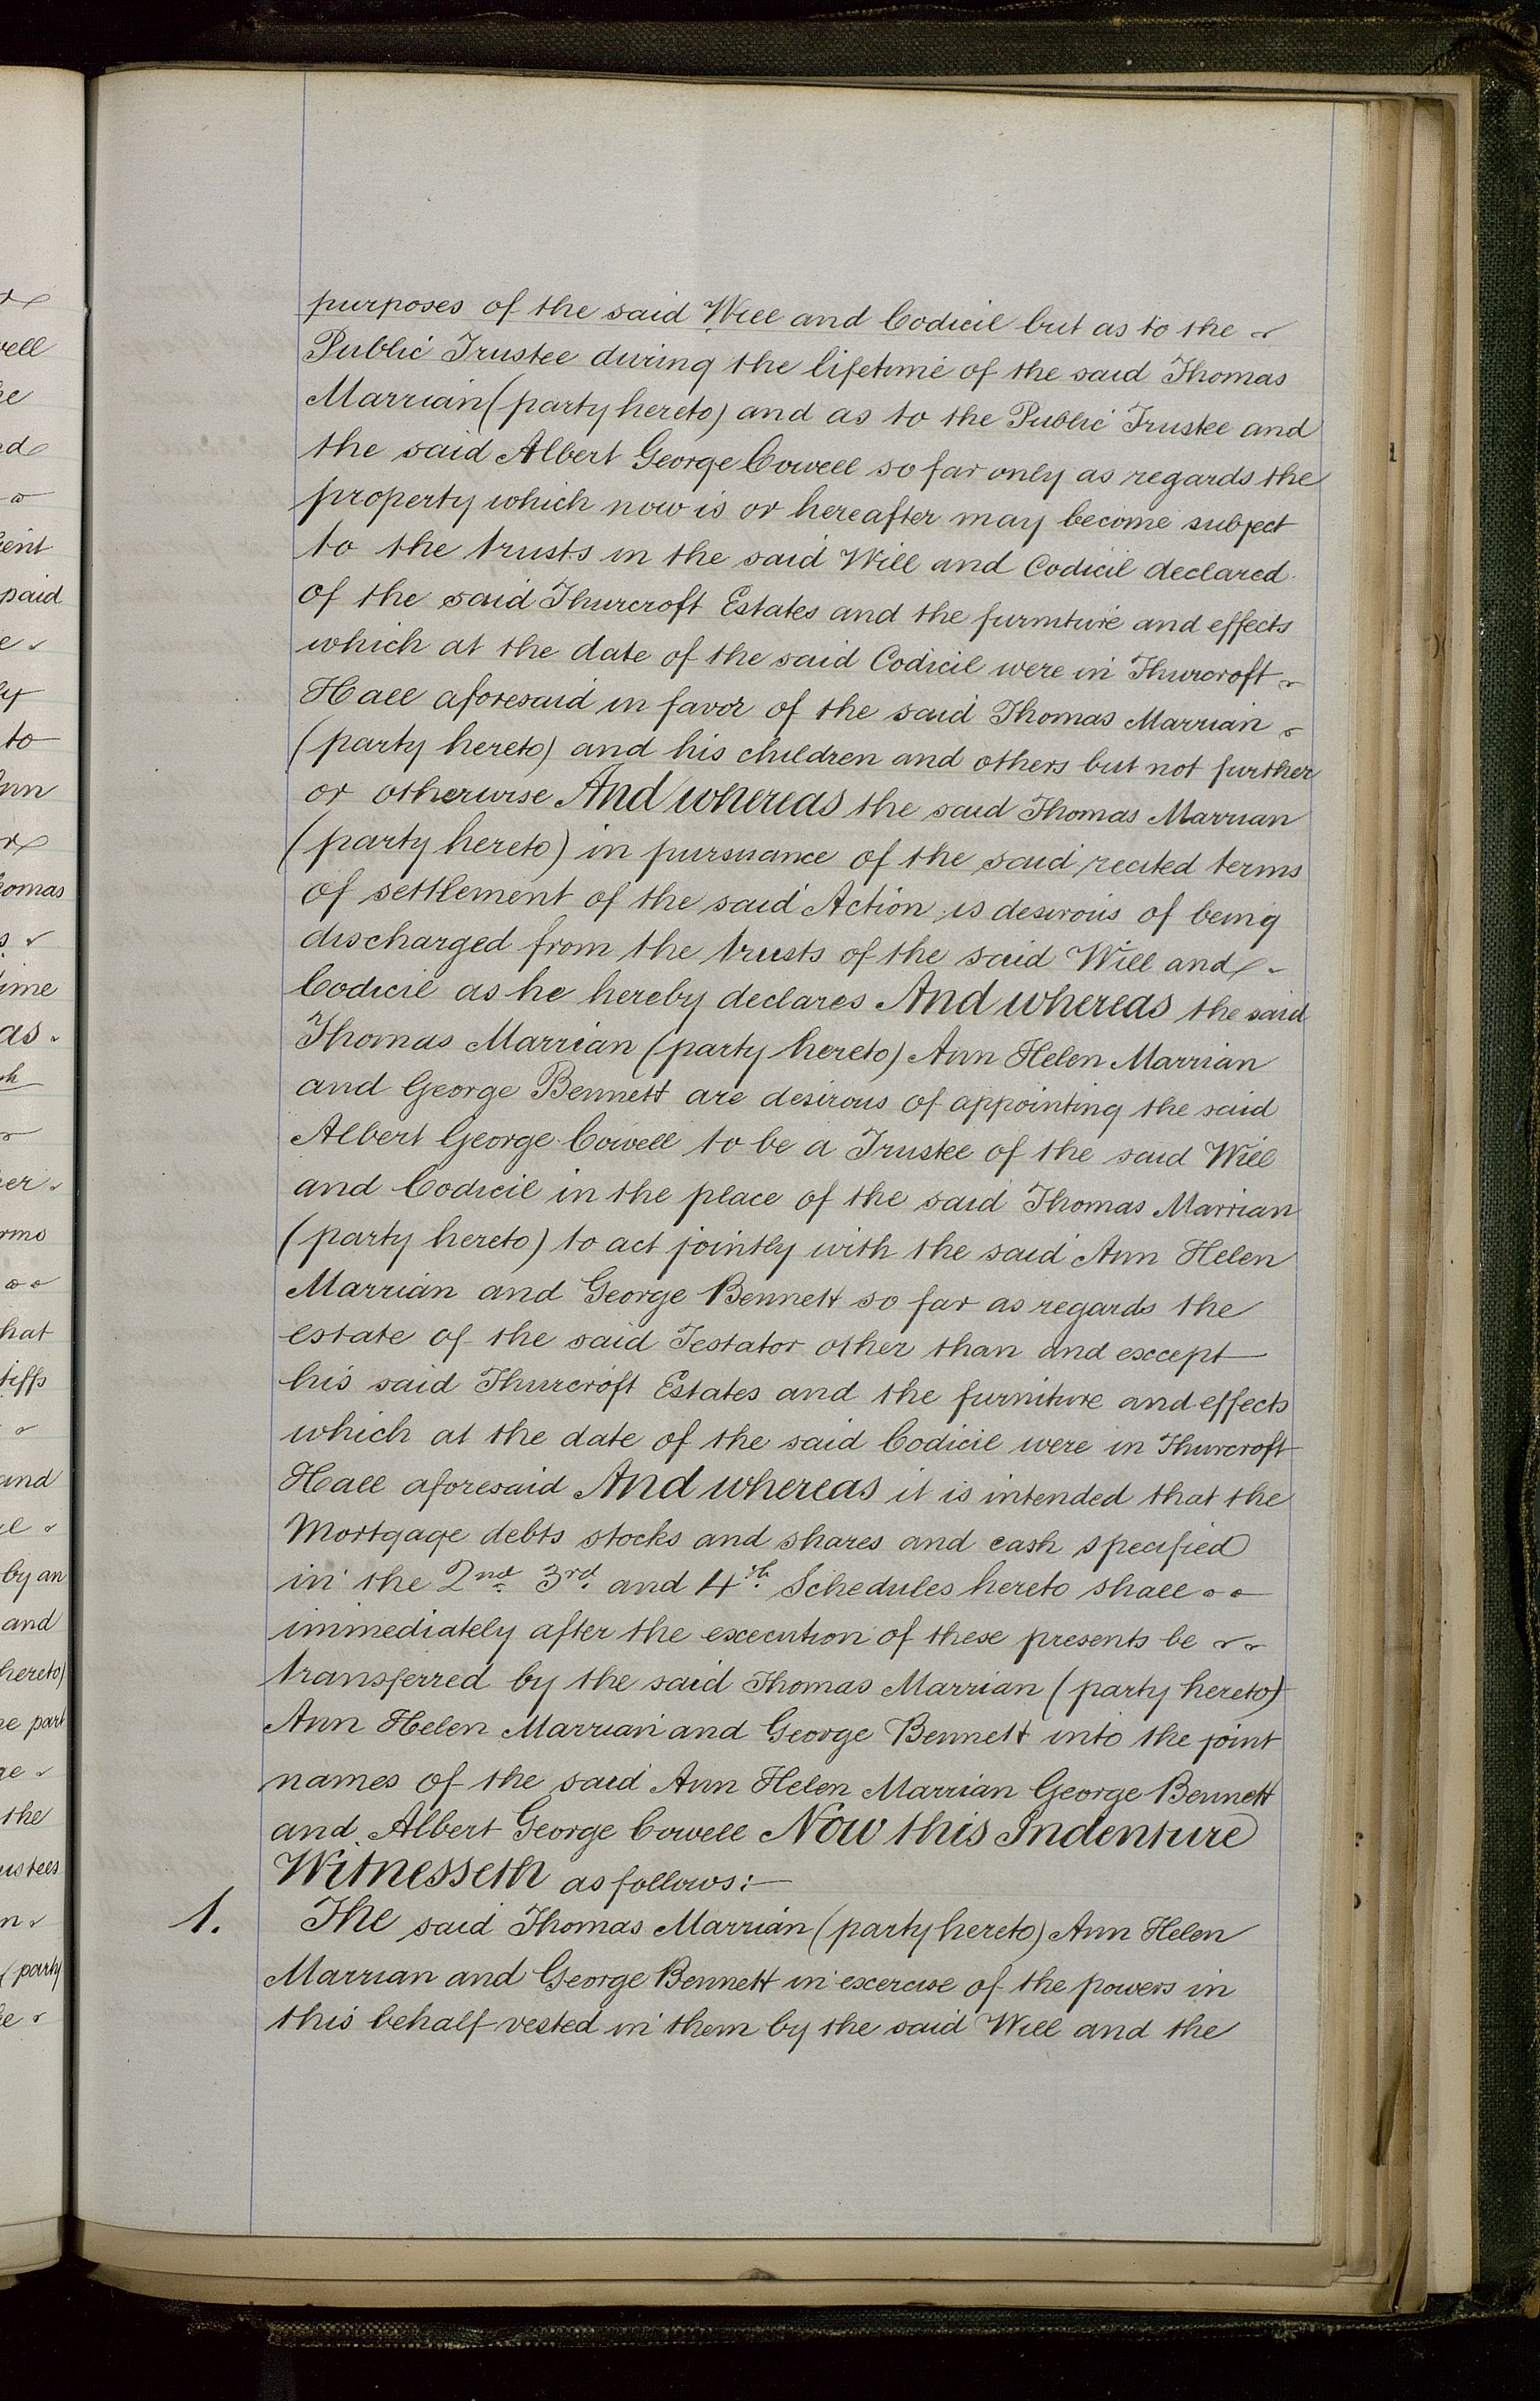 purposes of the said Will and Codicil but as to the
Public Trustee during the lifetime of the said Thomas
Marrian (party hereto) and as to the Public Trustee and
the said Albert George Cowell so far only as regards the
property which now is or hereafter may become subject
to the trusts in the said Will and Codicil declared
of the said Thurcroft Estates and the furniture and effects
which at the date of the said Codicil were in Thurcroft
Hall aforesaid in favor of the said Thomas Marrian
(party hereto) and his children and others but not further
or otherwise And whereas the said Thomas Marrian
(party hereto) in pursuance of the said recited terms
of settlement of the said Action is desirous of being
discharged from the trusts of the said Will and
Codicil as he hereby declares And whereas the said
Thomas Marrian (party hereto) Ann Helen Marrian
and George Bennett are desirous of appointing the said
Albert George Cowell to be a Trustee of the said Will
and Codicil in the place of the said Thomas Marrian
(party hereto) to act jointly with the said Ann Helen
Marrian and George Bennett so far as regards the
estate of the said Testator other than and except
his said Thurcroft Estates and the furniture and effects
which at the date of the said Codicil were in Thurcroft
Hall aforesaid And whereas it is intended that the
Mortgage debts stocks and shares and cash specified
in the 2nd. 3rd. and 4th. Schedules hereto shall
immediately after the execution of these presents be
transferred by the said Thomas Marrian (party hereto)
Ann Helen Marrian and George Bennett into the joint
names of the said Ann Helen Marrian George Bennett
and Albert George Cowell Now this Indenture
Witnesseth as follows:—
1. The said Thomas Marrian (party hereto) Ann Helen
Marrian and George Bennett in exercise of the powers in
this behalf vested in them by the said Will and the